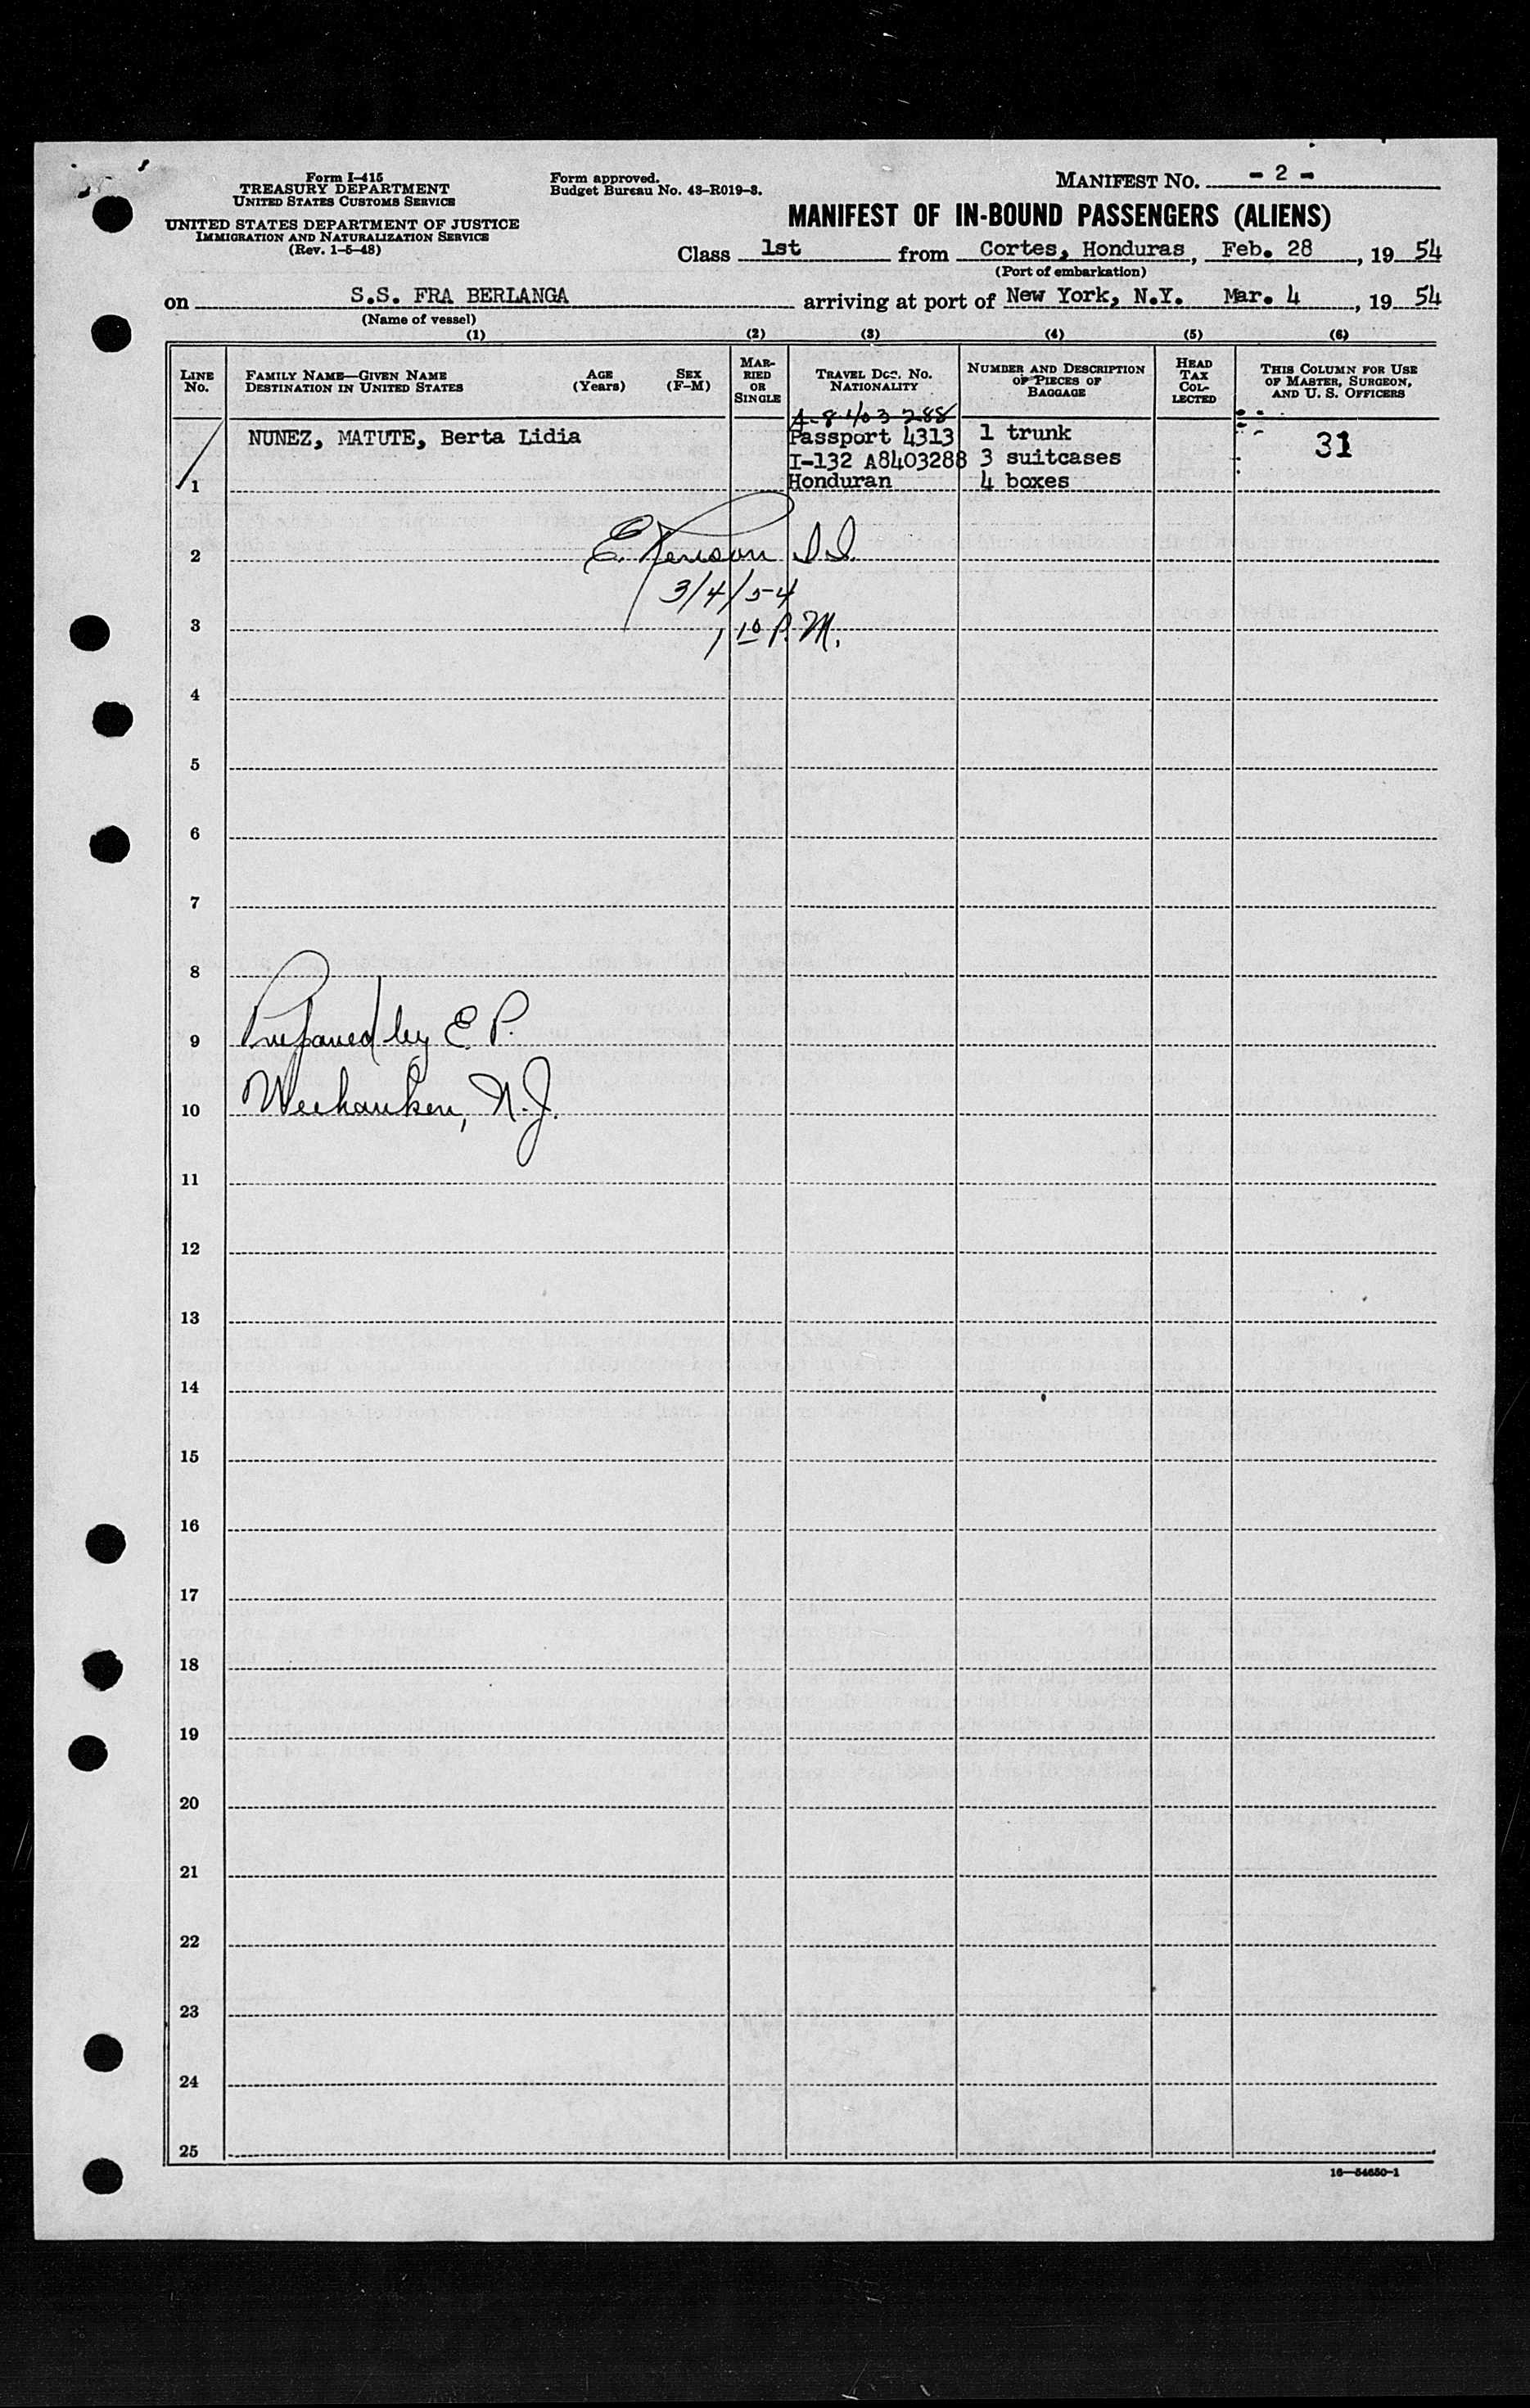 Form I-415
TREASURY DEPARTMENT
UNITED STATES CUSTOMS SERVICE
UNITED STATES DEPARTMENT OF JUSTICE
IMMIGRATION AND NATURALIZATION SERVICE
(Rev. 1-5-48)
Form approved.
Budget Bureau No. 43-R019-3.
MANIFEST NO. - 2 -
MANIFEST OF IN-BOUND PASSENGERS (ALIENS)
Class 1st from Cortes, Honduras, Feb. 28, 19 54
(Port of embarkation)
on S.S. FRA BERLANGA arriving at port of New York, N.Y. Mar. 4, 19 54
(Name of vessel)
(1) (2) (3) (4) (5) (6)
LINE No. FAMILY NAME—GIVEN NAME DESTINATION IN UNITED STATES AGE (Years) SEX (F-M) MARRIED OR SINGLE TRAVEL DOC. NO. NATIONALITY NUMBER AND DESCRIPTION OF PIECES OF BAGGAGE HEAD TAX COLLECTED THIS COLUMN FOR USE OF MASTER, SURGEON, AND U. S. OFFICERS
A-8 403 288
NUNEZ, MATUTE, Berta Lidia Passport 4313 1 trunk 31
I-132 A8403288 3 suitcases
1 Honduran 4 boxes
2 E.
3/4/54
3 1 10 P.M.
4
5
6
7
8
9 Prepared by E. P.
10 Weehauken, N.J.
11
12
13
14
15
16
17
18
19
20
21
22
23
24
25
16—54650-1